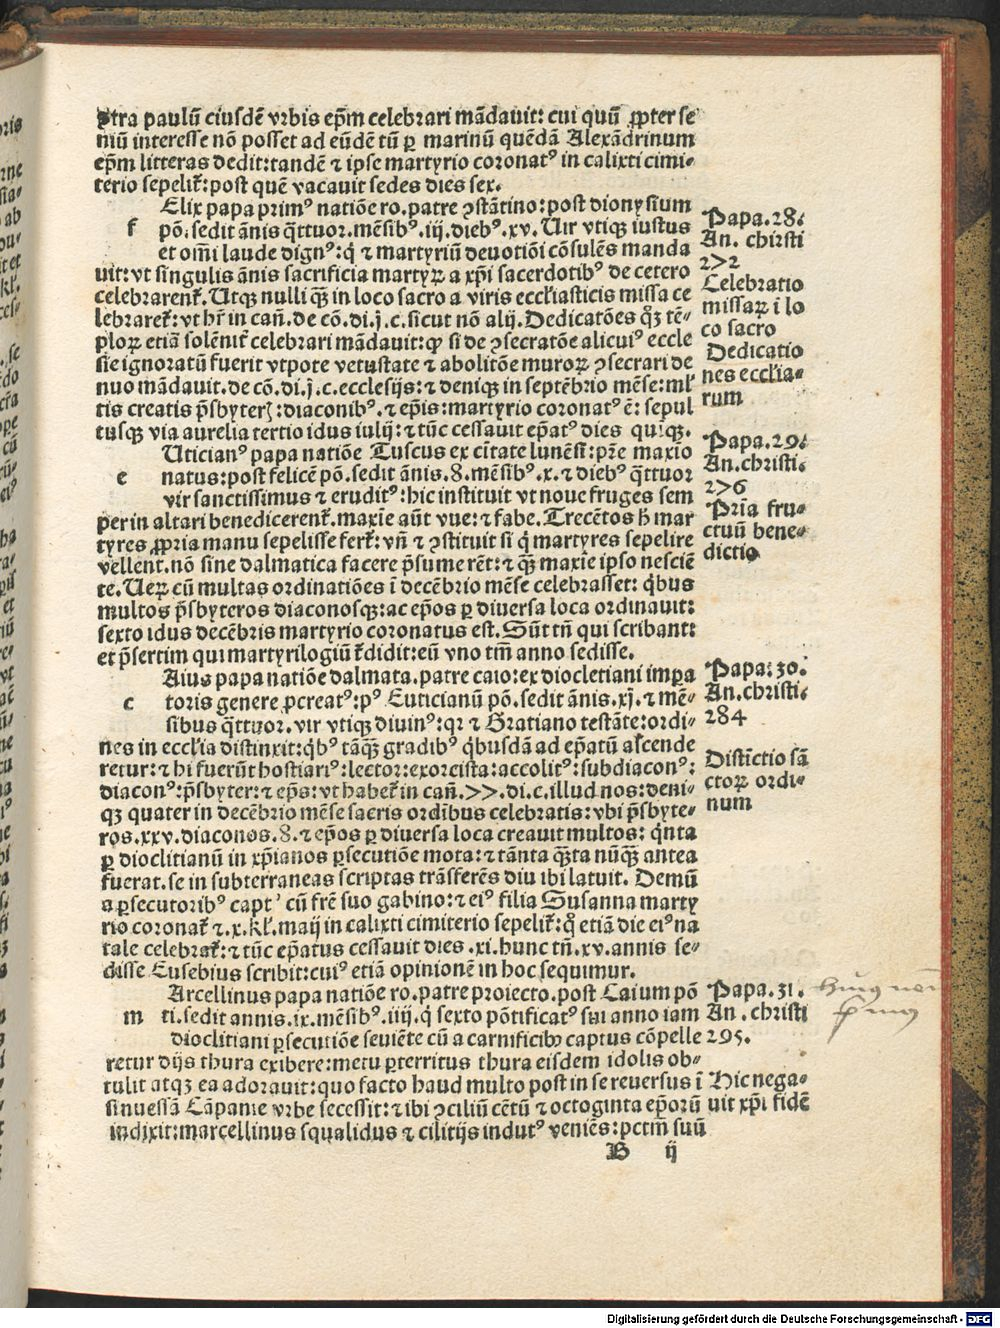 ꝯtra paulū eiusdē vrbis ep̄m celebrari mādauit: cui quū ꝓpter se
niū interesse nō posset ad eūdē tū ꝑ marinū quēdā Alexādrinum
ep̄m litteras dedit: tandē ⁊ ipse martyrio coronatꝰ in calixti cimi-
terio sepelit̃: post quē vacauit sedes dies sex.
Elix papa primꝰ natiōe ro. patre ꝯstātino: post dionysium
f pō. sedit ānis q̄ttuor. mēsibꝰ. iij. diebꝰ. xv. Uir vtiqꝫ iustus
et om̄i laude dignꝰ: q̇ ⁊ martyriū deuotiōi cōsulēs manda
uit: vt singulis ānis sacrificia martyꝝ a xp̄i sacerdotibꝰ de cetero
celebrarent̃. Utqꝫ nulli q̄ꝫ in loco sacro a viris eccl̓iasticis missa ce
lebraret̃: vt hr̄ in cañ. de cō. di. j. c. sicut nō alij. Dedicatōes qꝫ tē-
ploꝝ etiā solēnit̃ celebrari mādauit: ꝙ si de ꝯsecratōe alicuiꝰ eccle
sie ignoratū fuerit vtpote vetustate ⁊ abolitōe muroꝝ ꝯsecrari de
nuo mādauit. de cō. di. j. c. ecclesijs: ⁊ deniqꝫ in septēbrio mēse: ml̓
tis creatis p̄sbyteris: diaconibꝰ. ⁊ ep̄is: martyrio coronatꝰ ē: sepul
tusqꝫ via aurelia tertio idus iulij: ⁊ tūc cessauit ep̄atꝰ dies quīqꝫ.
Uticianꝰ papa natiōe Tuscus ex c̄itate lunēsi: pr̄e maxio
e natus: post felicē pō. sedit ānis. 8. mēsibꝰ. x. ⁊ diebꝰ q̄ttuor
vir sanctissimus ⁊ eruditꝰ: hic instituit vt noue fruges sem
per in altari benedicerent̃. maxīe aūt vue: ⁊ fabe. Trecētos h̄ mar
tyres ꝓpria manu sepelisse fert̃: vñ ⁊ ꝯstituit si q̇ martyres sepelire
vellent. nō sine dalmatica facere p̄sume rēt: ⁊ q̄ꝫ maxīe ipso nesciē
te. Ueꝝ cū multas ordinatiōes ī decēbrio mēse celebrasset: q̇bus
multos p̄sbyteros diaconosqꝫ: ac ep̄os ꝑ diuersa loca ordinauit:
sexto idus decēbris martyrio coronatus est. Sūt tñ qui scribant:
et p̄sertim qui martyrilogiū ꝯdidit: eū vno tm̄ anno sedisse.
Aius papa natiōe dalmata. patre caio: ex diocletiani impa
c toris genere ꝓcreatꝰ: pꝰ Euticianū pō. sedit ānis. xj. ⁊ mē-
sibus q̄ttuor. vir vtiqꝫ diuinꝰ: qꝛ ⁊ Gratiano testāte: ordi-
nes in eccl̓ia distinxit: q̇bꝰ tāq̄ꝫ gradibꝰ q̇busdā ad ep̄atū ascende
retur: ⁊ hi fuerūt hostiariꝰ: lector: exorcista: accolitꝰ: subdiaconꝰ:
diaconꝰ: p̄sbyter: ⁊ ep̄s: vt habet̃ in cañ. 77. di. c. illud nos: deni-
qꝫ quater in decēbrio mēse sacris ordibus celebratis: vbi p̄sbyte-
ros. xxv. diaconos. 8. ⁊ ep̄os ꝑ diuersa loca creauit multos: q̇nta
ꝑ dioclitianū in xp̄ianos ꝑsecutiōe mota: ⁊ tāta q̄ꝫta nūq̄ꝫ antea
fuerat. se in subterraneas scriptas trāsferēs diu ibi latuit. Demū
a ꝑsecutoribꝰ captꝰ cū fr̄e suo gabino: ⁊ eiꝰ filia Susanna marty
rio coronat̃ ⁊. x. kl̓. maij in calixti cimiterio sepelit̃: q̊ etiā die eiꝰ na
tale celebrat̃: ⁊ tūc ep̄atus cessauit dies. xi. hunc tñ. xv. annis se-
disse Eusebius scribit: cuiꝰ etiā opinionē in hoc sequimur.
Arcellinus papa natiōe ro. patre proiecto. post Caium pō
m ti. sedit annis. ix. mēsibꝰ. iiij. q̇ sexto pōtificatꝰ sui anno iam
dioclitiani ꝑsecutiōe seuiēte cū a carnificibꝰ captus cōpelle
retur dijs thura exibere: metu ꝑterritus thura eisdem idolis ob-
tulit atqꝫ ea adorauit: quo facto haud multo post in se reuersus ī
sinuessā Cāpanie vrbe secessit: ⁊ ibi ꝯciliū cētū ⁊ octoginta ep̄orū
indixit: marcellinus squalidus ⁊ cilitijs indutꝰ veniēs: pctm̄ suū
B ij
Papa. 28.
An. chirsti
272
Celebratio
missaꝝ ī lo
co sacro
Dedicatio
nes eccl̓ia-
rum
Papa. 29.
An. christi.
276
Pr̄ia fru-
ctuū bene-
dictio
Papa: 30.
An. christi.
284
Distīctio sā
ctoꝝ ordi-
num
Papa. 31.
An. christi
295.
Hic nega-
uit xp̄i fidē